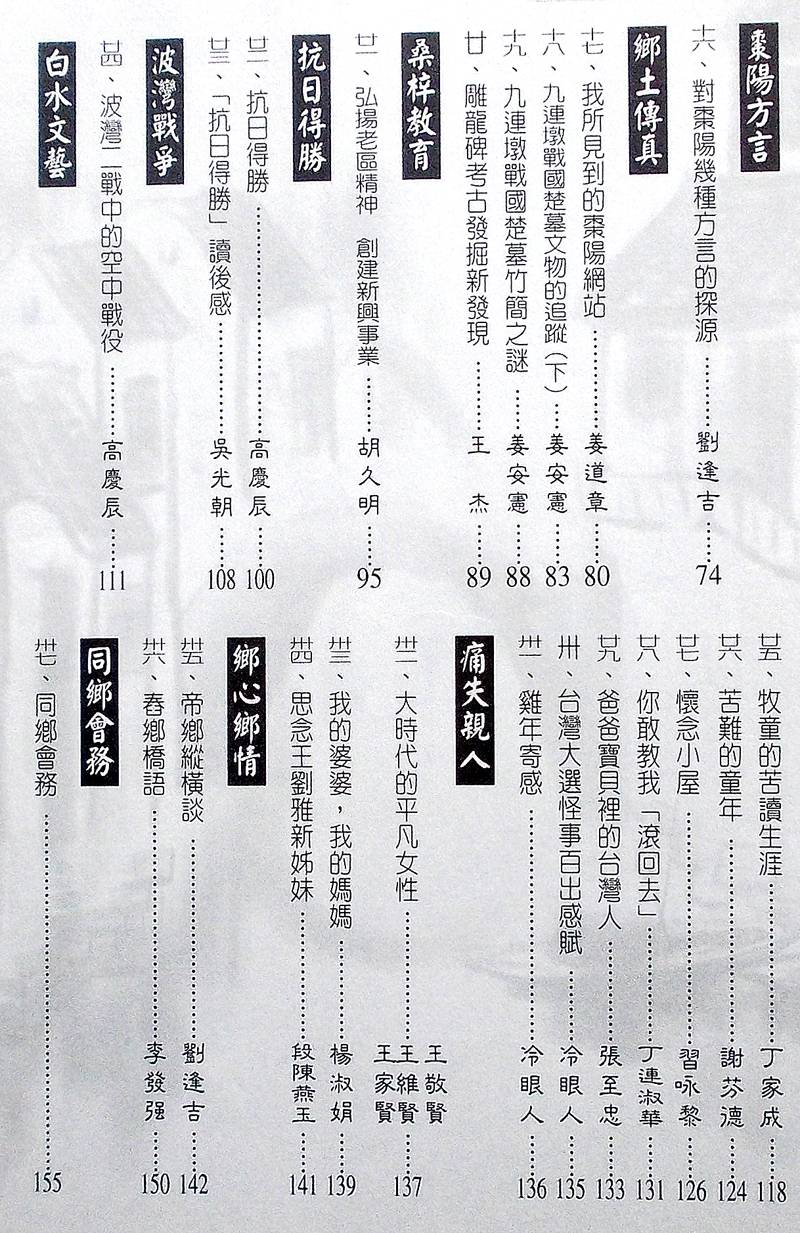 棗陽方言
十六、對棗陽幾種方言的探源……劉逢吉……74
鄉土傳真
十七、我所見到的棗陽網站……姜道章……80
十八、九連墩戰國楚墓文物的追蹤(下)……姜安憲……83
十九、九連墩戰國楚墓竹簡之謎……姜安憲……88
廿、雕龍碑考古發掘新發現……王 杰……89
桑梓教育
廿一、弘揚老區精神 創建新興事業……胡久明……95
抗日得勝
廿二、抗日得勝……高慶辰……100
廿三、「抗日得勝」讀後感……吳光朝……108
波灣戰爭
廿四、波灣二戰中的空中戰役……高慶辰……111
白水文藝
廿五、牧童的苦讀生涯……丁家成……118
廿六、苦難的童年……謝芬德……124
廿七、懷念小屋……習咏黎……126
廿八、你敢教我「滾回去」……丁連淑華……131
廿九、爸爸寶貝裡的台灣人……張至忠……133
卅、台灣大選怪事百出感賦……冷眼人……135
卅一、雞年寄感……冷眼人……136
痛失親人
卅二、大時代的平凡女性……王敬賢 王維賢 王家賢……137
卅三、我的婆婆，我的媽媽……楊淑娟……139
卅四、思念王劉雅新姊妹……段陳燕玉……141
鄉心鄉情
卅五、帝鄉縱橫談……劉逢吉……142
卅六、春鄉橋語……李發强……150
同鄉會務
卅七、同鄉會務……155